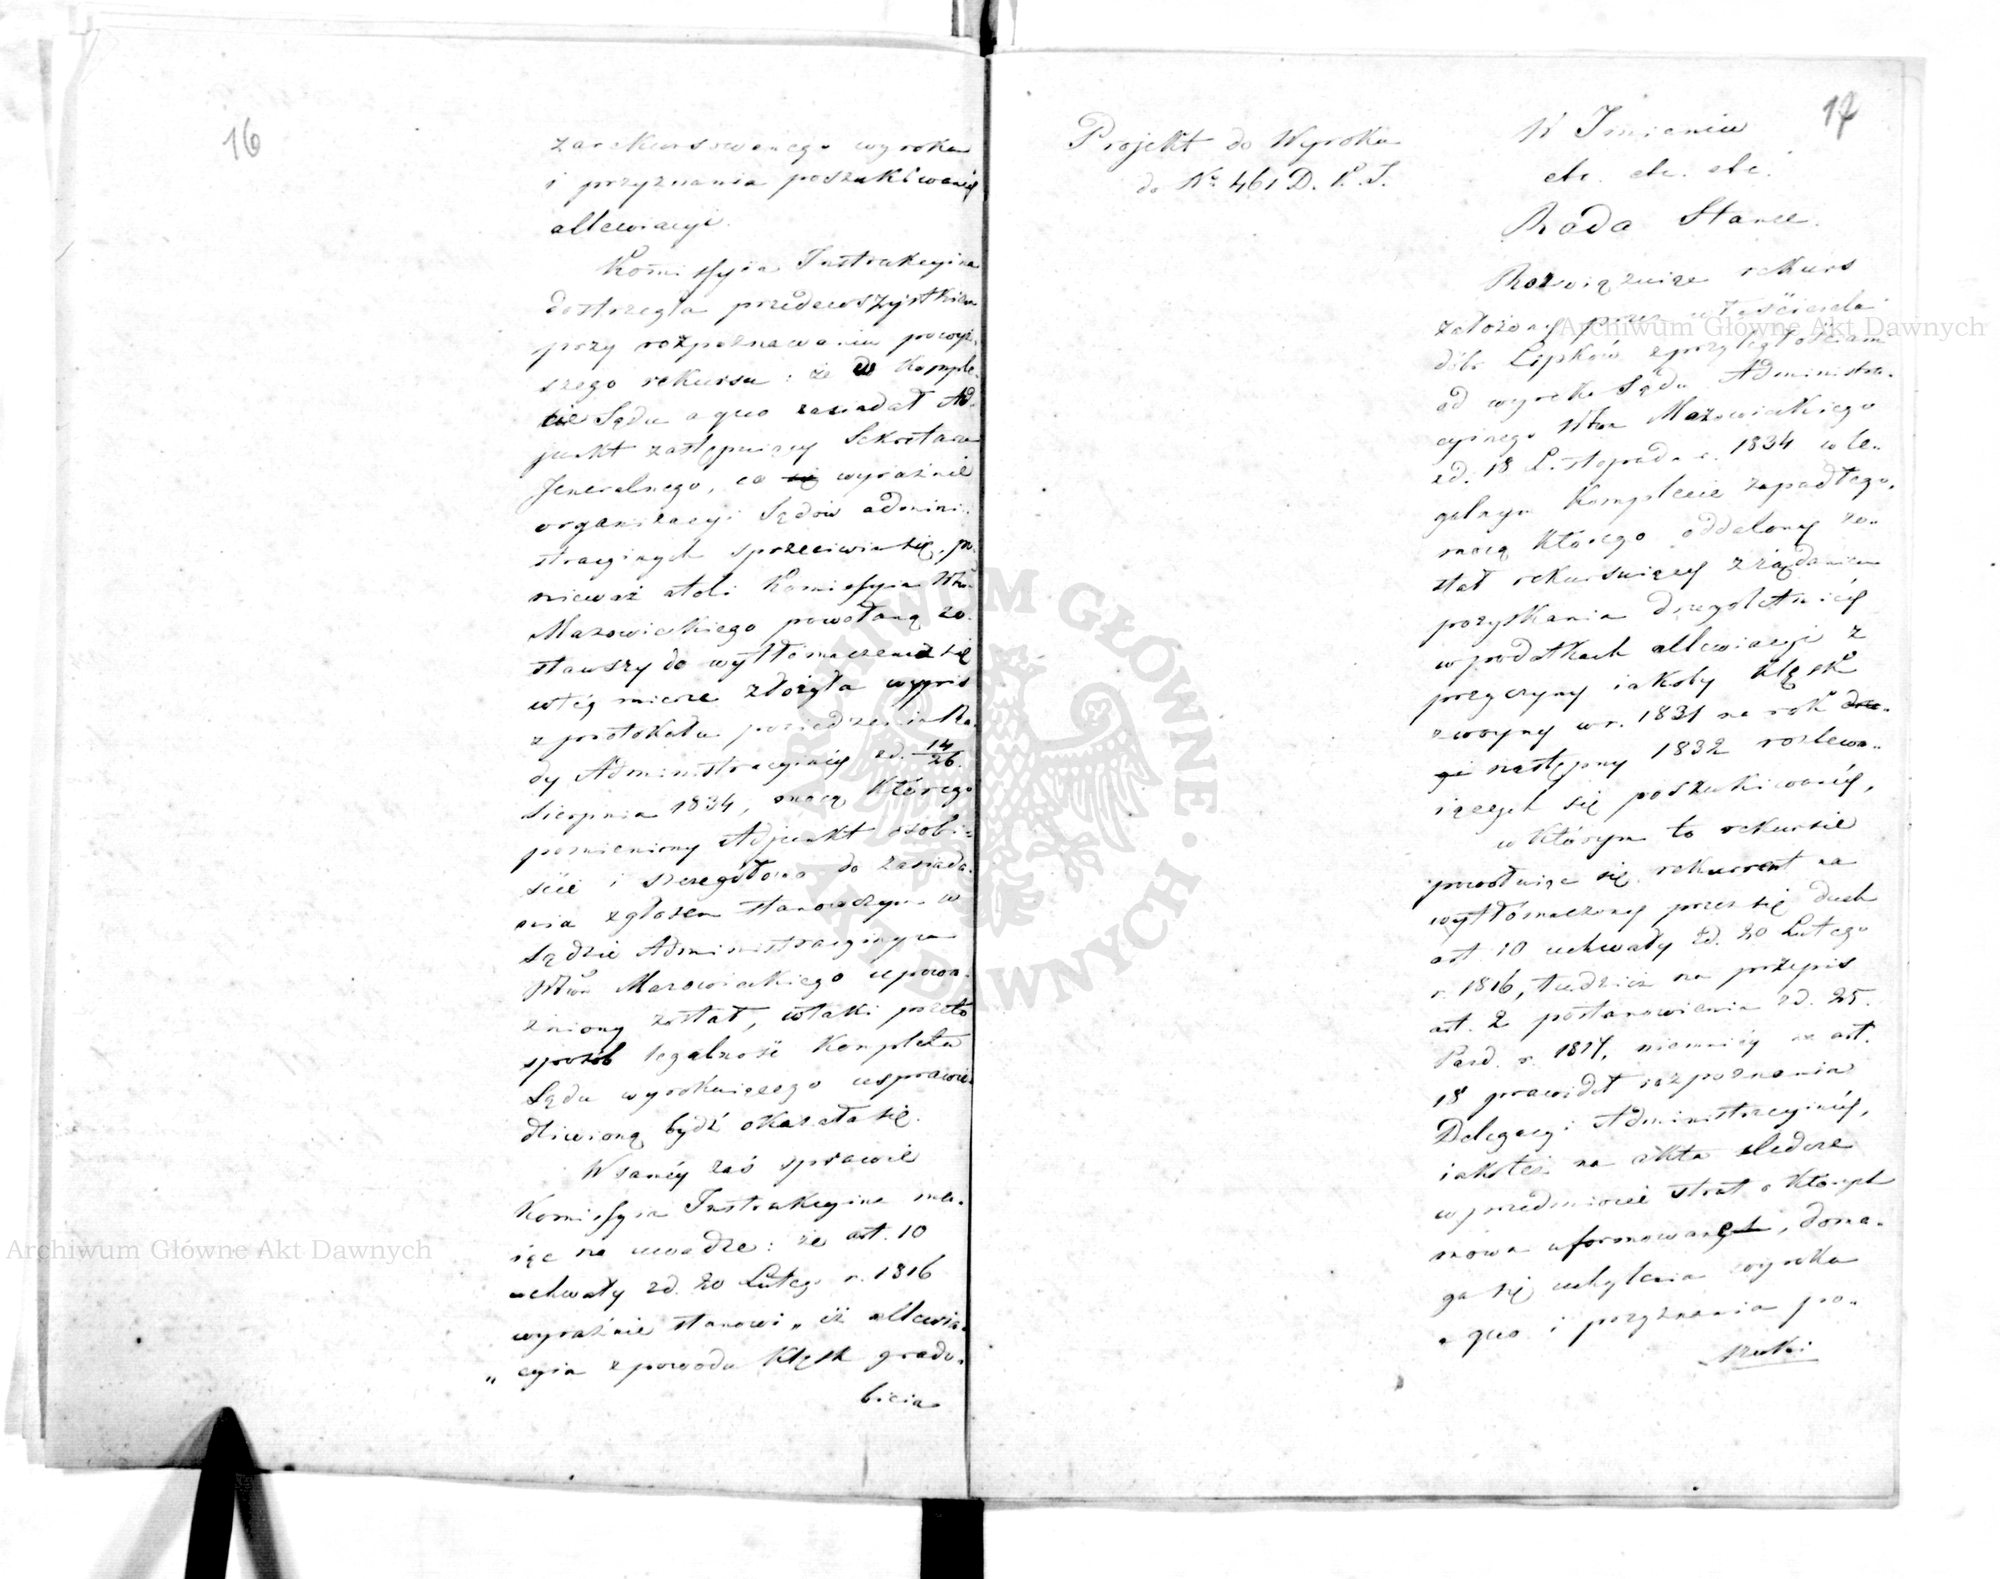 16
zarekursowanego wyroku
i przyznania poszukiwanéy
allewiacyi.
Kom̃issyia Instrukcyina
dostrzegła przedewszystkiem
przy rozpoznawaniu powyż„
szego rekursu: że w Komple„
cie Sądu a quo zasiadał Ad„
junkt zastępuiący Sekretarza
Jeneralnego, co wyraźnie
organizacyi Sądów admini„
stracyinych sprzeciwia się, po„
nieważ atoli Kommissyia Wdz̃
Mazowieckiego powołaną zo„
stawszy do wytłomaczenia się
w téy mierze złożyła wypis
z protokułu posiedzenia Ra„
dy Administracyinéy z d. 14/26
Sierpnia 1834, mocą którego
pomieniony Adjunkt osobi„
ście i szczegółowo do zasiada„
nia z głosem stanowczym w
Sądzie Administracyinym
Wdz̃twa Mazowieckiego upowa„
żniony został, w taki przeto
sposób legalność Kompletu
Sądu wyrokuiącego usprawie„
dliwioną bydź okazała się.
W saméy zaś sprawie
Komissyia Instrukcyina ma„
iąc na uwadze: że art. 10
uchwały z d. 20 Lutego r. 1816
wyraźnie stanowi „iż allewia„
„cyia z powodu klęsk grado„
bicia
17
Projekt do Wyroku
do No. 461 D. K. I.
W Imieniu
etc. etc. etc.
Rada Stanu.
Rozwiązuiąc rekurs
założony przez właściciela
dóbr Lipków z przyległościami
od wyroku Sądu Administra„
cyinego Wdztwa Mazowieckiego
z d. 18 Listopada r. 1834 w le„
galnym Komplecie zapadłego,
mocą którego oddalony zo„
stał rekursuiący z żądaniem
pozyskania drugoletniéy
w podatkach allewiacyi z
przyczyny iakoby klęsk
z woyny w r. 1831 na rok
następny 1832 rozlewa„
iących się poszukiwanéy,
w którym to rekursie
powołuiąc się rekurrent na
wytłómaczony przez się duch
art. 10 uchwały z d. 20 Lutego
r. 1816, tudzież na przepis
art. 2 postanowienia z d. 25.
Pazd. r. 1817, niemniéy na art.
18 prawideł rozpoznania
Delegacyi Administracyinéy,
iakoteż na akta śledcze
w przedmiocie strat o których
mowa uformowane, doma„
ga się uchylenia wyroku
a quo i przyznania po„
szuki